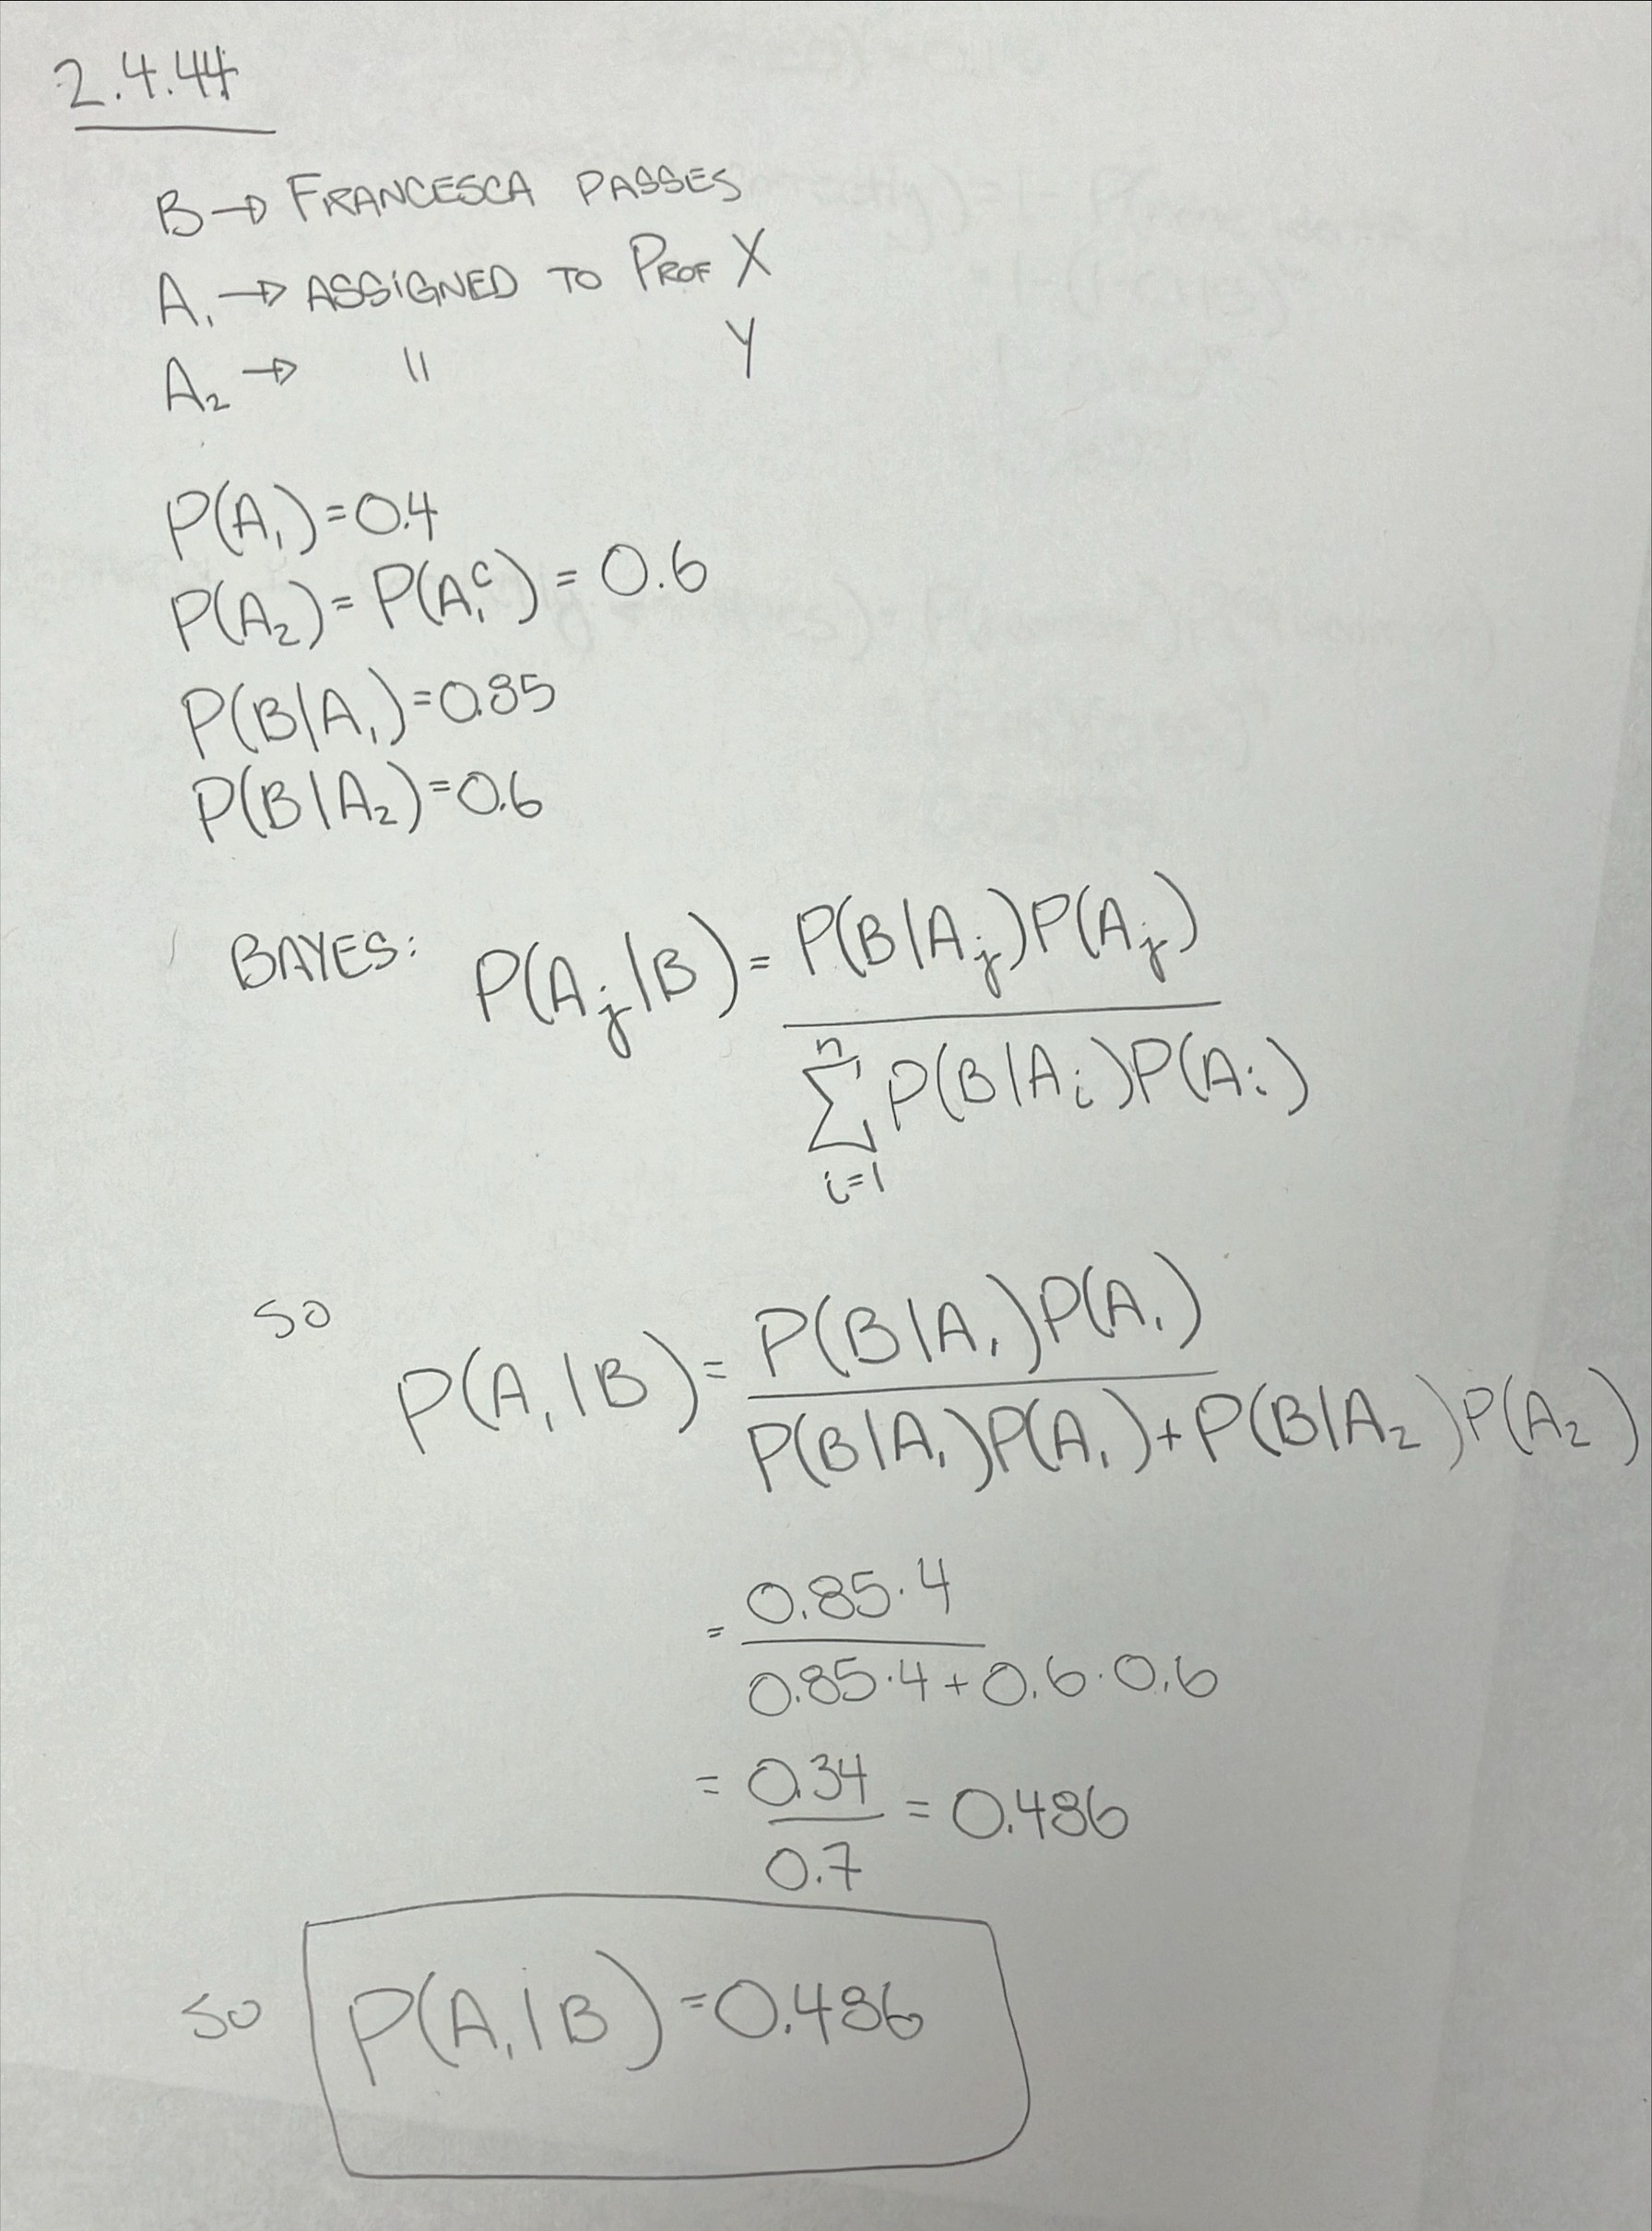 2.4.44
B → FRANCESCA PASSES
A₁ → ASSIGNED TO PROF X
A₂ → " Y
P(A₁)=0.4
P(A₂)=P(A₁ᶜ)=0.6
P(B|A₁)=0.85
P(B|A₂)=0.6
BAYES: P(Aⱼ|B)= P(B|Aⱼ)P(Aⱼ)
n
∑ P(B|Aᵢ)P(Aᵢ)
i=1
SO
P(A₁|B)= P(B|A₁)P(A₁)
P(B|A₁)P(A₁)+P(B|A₂)P(A₂)
= 0.85·4
0.85·4+0.6·0.6
= 0.34 = 0.486
0.7
SO P(A₁|B)=0.486